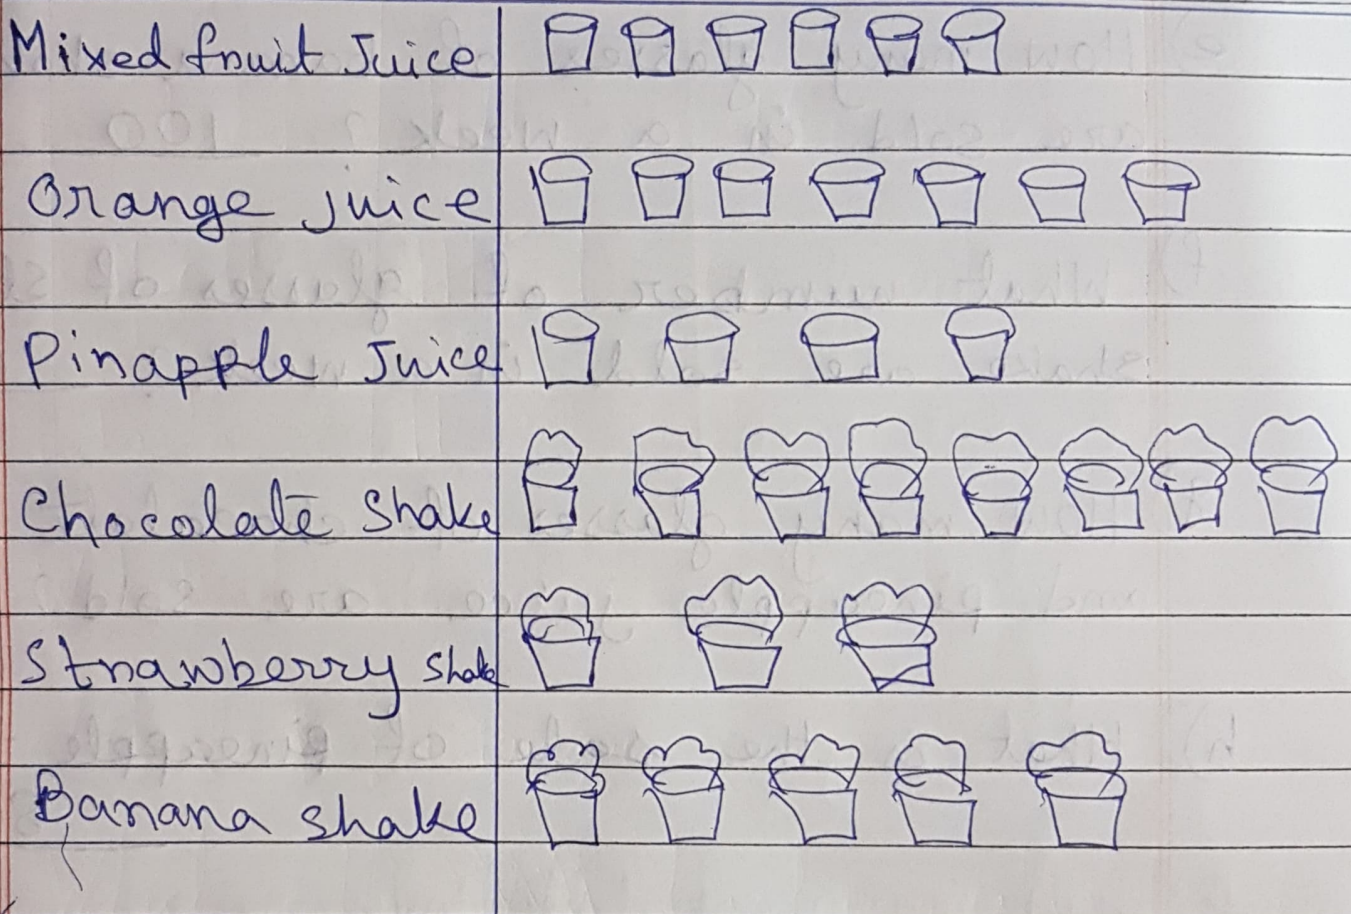 Mixed fruit Juice
Orange juice
Pinapple Juice
Chocolate Shake
Strawberry Shake
Banana shake